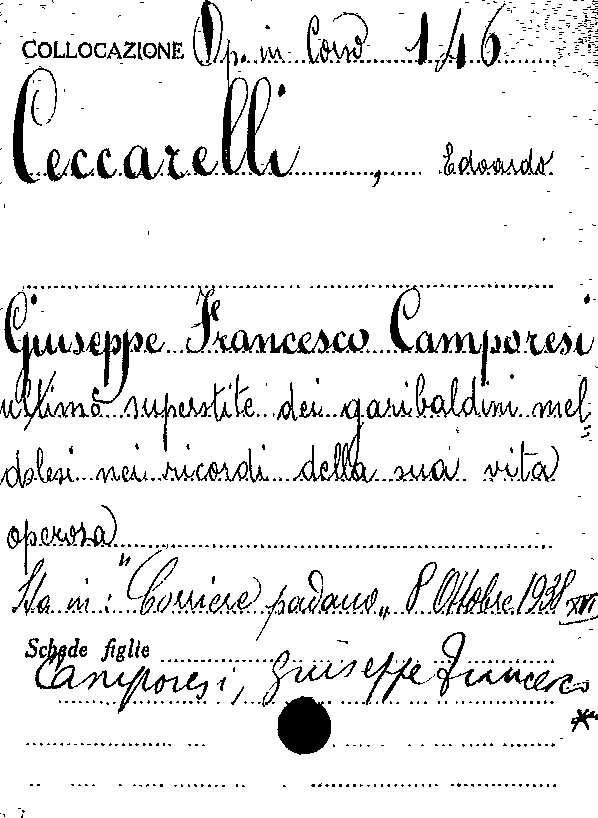 COLLOCAZIONE Op. in Corso 146
Ceccarelli, Edoardo
Giuseppe Francesco Camporesi
ultimo superstite dei garibaldini mel=
dolesi nei ricordi della sua vita
operosa
Sta in: "Corriere padano" 8 Ottobre 1938 XVI
Schede figlie
Camporesi, Giuseppe Francesco
*